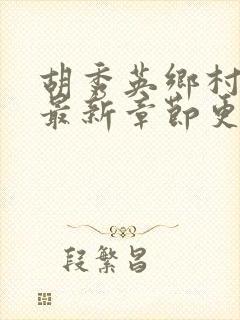 胡秀英鄉村
最新章節更
段繁昌